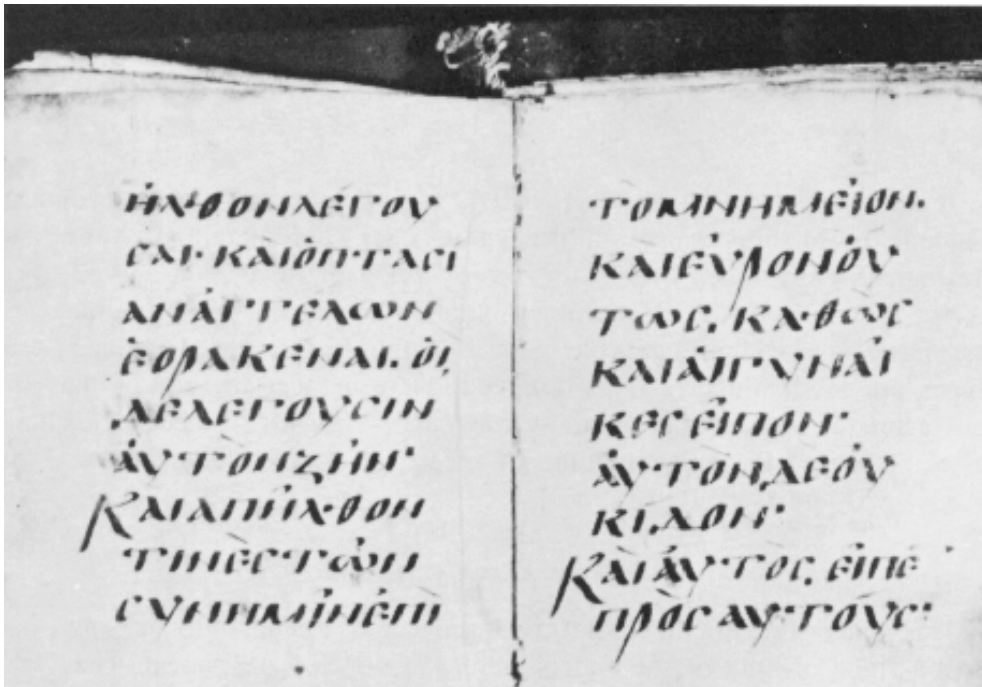 ΗΛΘΟΝΛΕΓΟΥ
ϹΑΙ· ΚΑΙΟΠΤΑϹΙ
ΑΝΑΓΓΕΛΩΝ
ΕΟΡΑΚΕΝΑΙ. ΟΙ
ΔΕΛΕΓΟΥϹΙΝ
ΑΥΤΟΝΖΗΝ·
ΚΑΙΑΠΗΛΘΟΝ
ΤΙΝΕϹΤΩΝ
ϹΥΝΗΜΙΝΕΠΙ
ΤΟΜΝΗΜΕΙΟΝ.
ΚΑΙΕΥΡΟΝΟΥ
ΤΩϹ. ΚΑΘΩϹ
ΚΑΙΑΙΓΥΝΑΙ
ΚΕϹΕΙΠΟΝ·
ΑΥΤΟΝΔΕΟΥ
ΚΙΔΟΝ·
ΚΑΙΑΥΤΟϹ. ΕΙΠΕ
ΠΡΟϹΑΥΤΟΥϹ·